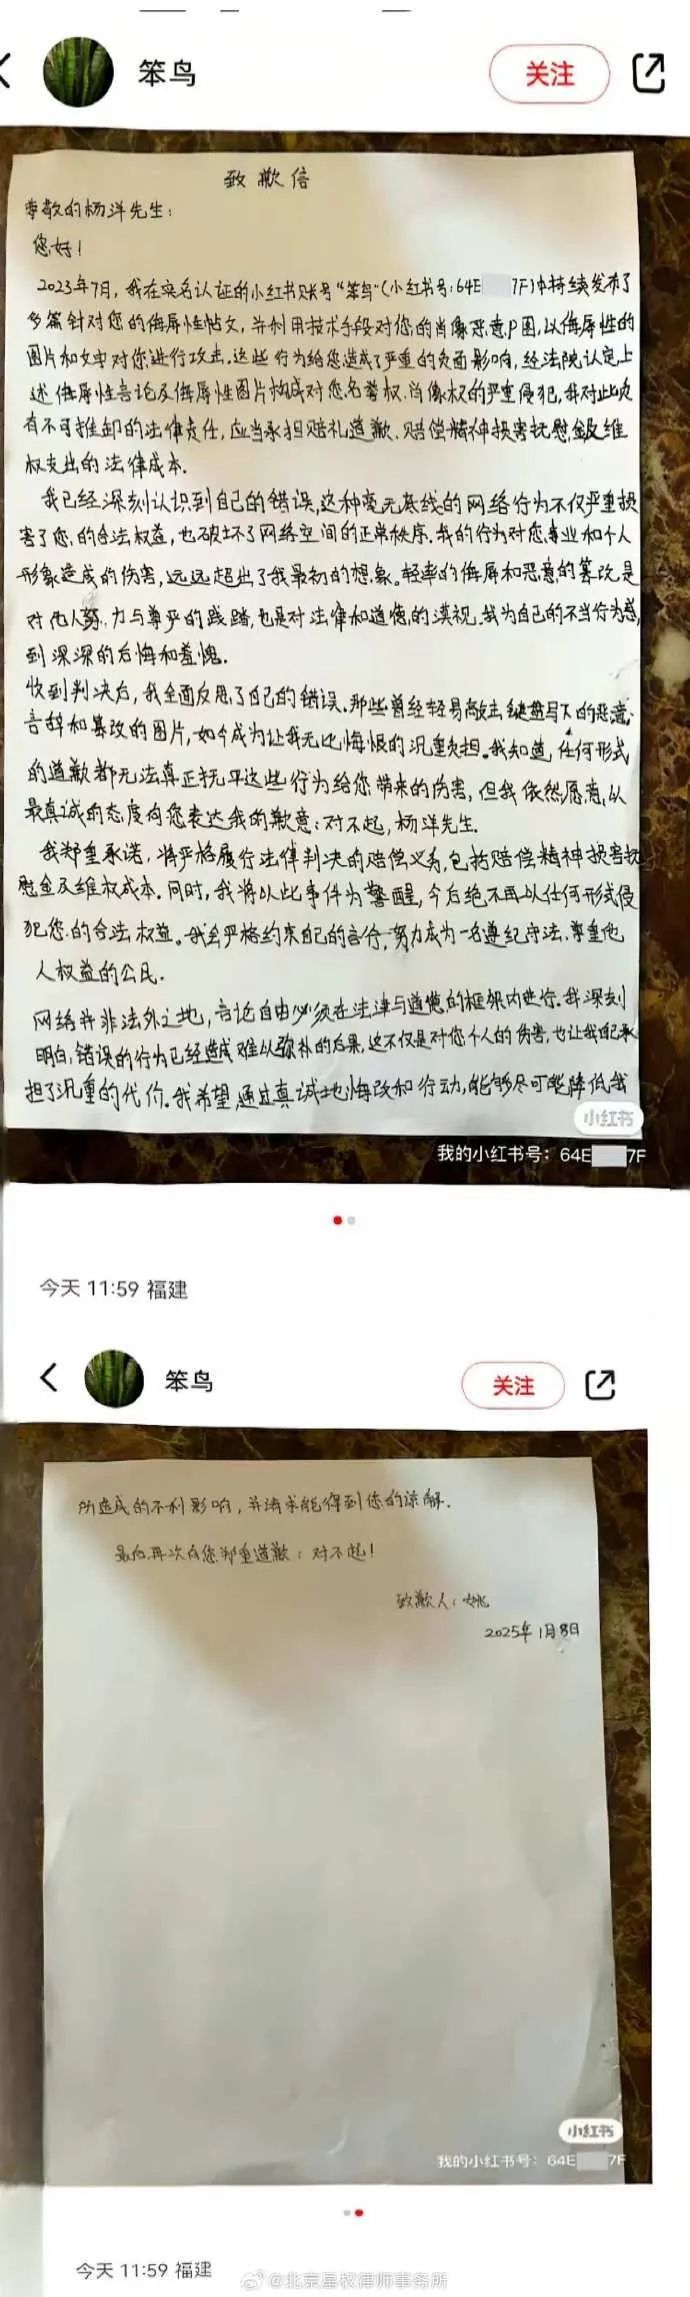 笨鸟
关注
致歉信
尊敬的杨洋先生:
您好!
2023年7月,我在实名认证的小红书账号“笨鸟”(小红书号:64E 7F)中持续发布了
多篇针对您的侮辱性帖文,并利用技术手段对您的肖像恶意P图,以侮辱性的
图片和文字对您进行攻击.这些行为给您造成了严重的负面影响,经法院认定上
述侮辱性言论及侮辱性图片构成对您名誉权、肖像权的严重侵犯,我对此负
有不可推卸的法律责任,应当承担赔礼道歉、赔偿精神损害抚慰金及维
权支出的法律成本.
我已经深刻认识到自己的错误,这种毫无底线的网络行为不仅严重损
害了您的合法权益,也破坏了网络空间的正常秩序.我的行为对您事业和个人
形象造成的伤害,远远超出了我最初的想象.轻率的侮辱和恶意的篡改,是
对他人努力与尊严的践踏,也是对法律和道德的漠视.我为自己的不当行为感
到深深的后悔和羞愧.
收到判决后,我全面反思了自己的错误.那些曾经轻易敲击键盘写下的恶意
言辞和篡改的图片,如今成为让我无比悔恨的沉重负担.我知道,任何形式
的道歉都无法真正抚平这些行为给您带来的伤害,但我依然愿意,从
最真诚的态度向您表达我的歉意:对不起,杨洋先生.
我郑重承诺,将严格履行法律判决的赔偿义务,包括赔偿精神损害抚
慰金及维权成本.同时,我将以此事件为警醒,今后绝不再以任何形式侵
犯您的合法权益。我会严格约束自己的言行,努力成为一名遵纪守法、尊重他
人权益的公民.
网络并非法外之地,言论自由必须在法律与道德的框架内进行.我深刻
明白,错误的行为已经造成难以弥补的后果,这不仅是对您个人的伤害,也让我自己承
担了沉重的代价.我希望,通过真诚地悔改和行动,能够尽可能降低我
小红书
我的小红书号:64E 7F
今天 11:59 福建
笨鸟
关注
所造成的不利影响,并请求能得到您的谅解.
最后再次向您郑重道歉:对不起!
致歉人:姚
2025年1月8日
小红书
我的小红书号:64E 7F
今天 11:59 福建
@北京星权律师事务所